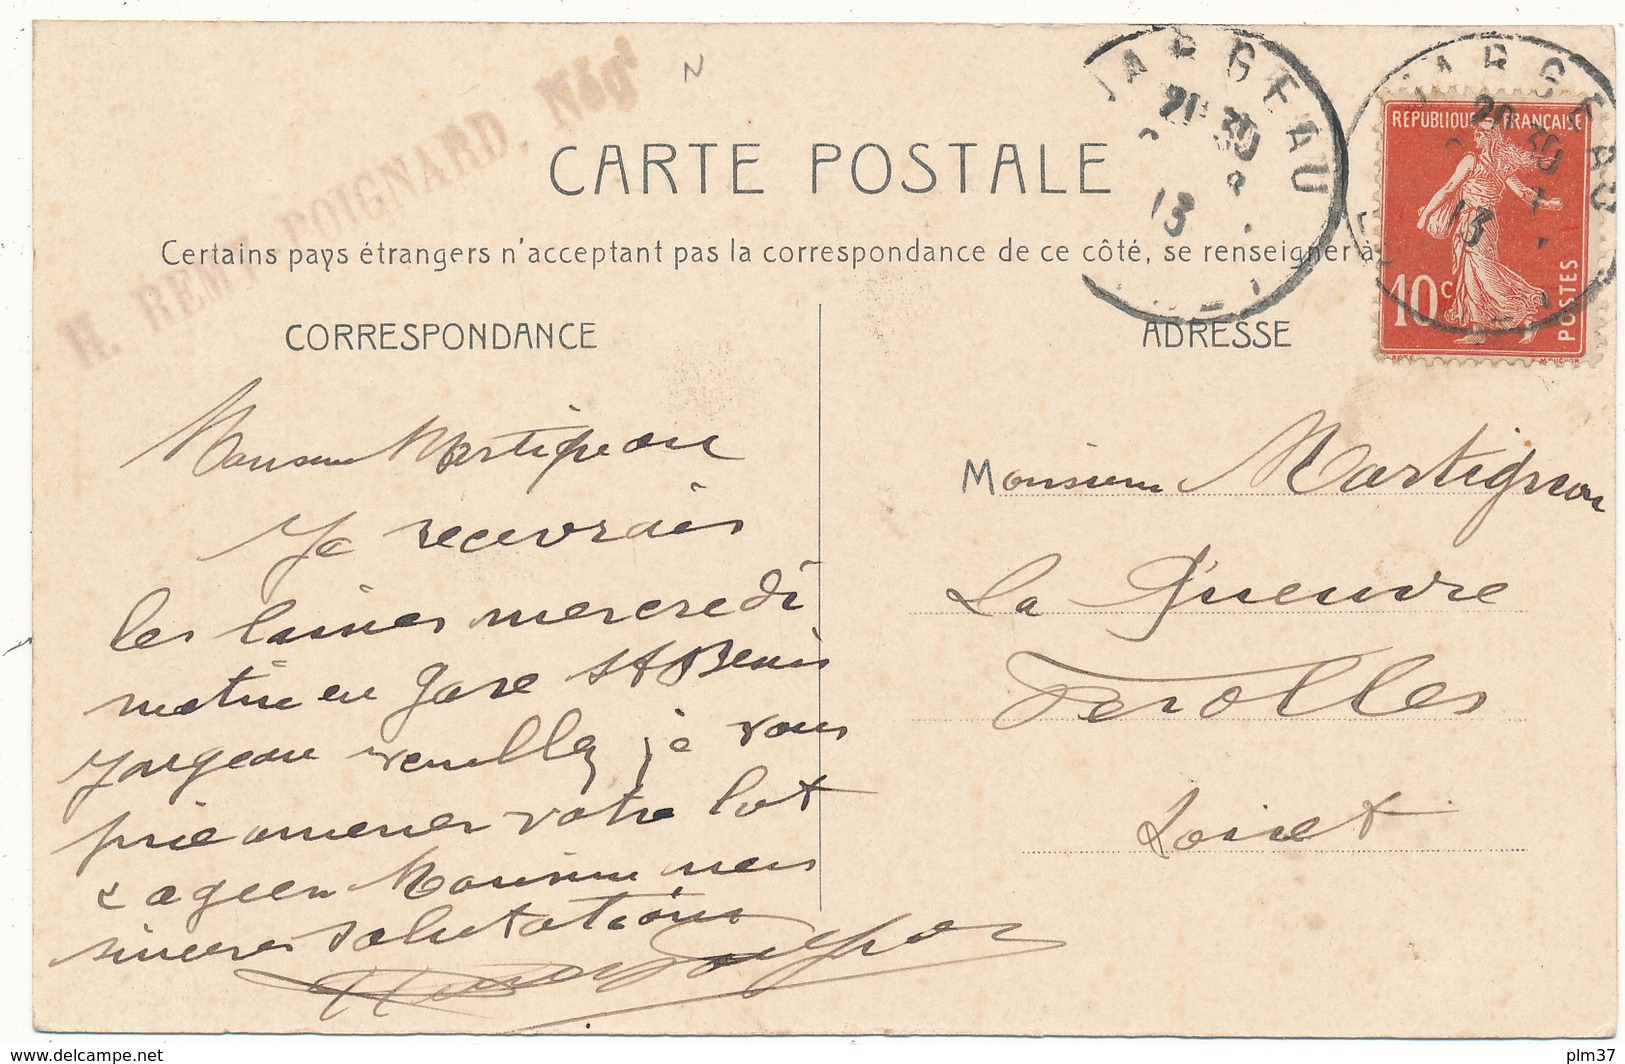 H. REMY POIGNARD, Nég^t
N
CARTE POSTALE
Certains pays étrangers n'acceptant pas la correspondance de ce côté, se renseigner à
CORRESPONDANCE
ADRESSE
JARGEAU
20 30
13
JARGEAU
20 30
13
REPUBLIQUE FRANÇAISE
10c
POSTES
Monsieur Martignon
Je recevrais
les laines mercredi
matin en gare St Denis
Jargeau veuillez je vous
prie amener votre lot
& agréer Monsieur mes
sincères salutations
Monsieur Martignon
La Queuvre
Ferolles
Loiret
delcampe.net
plm37